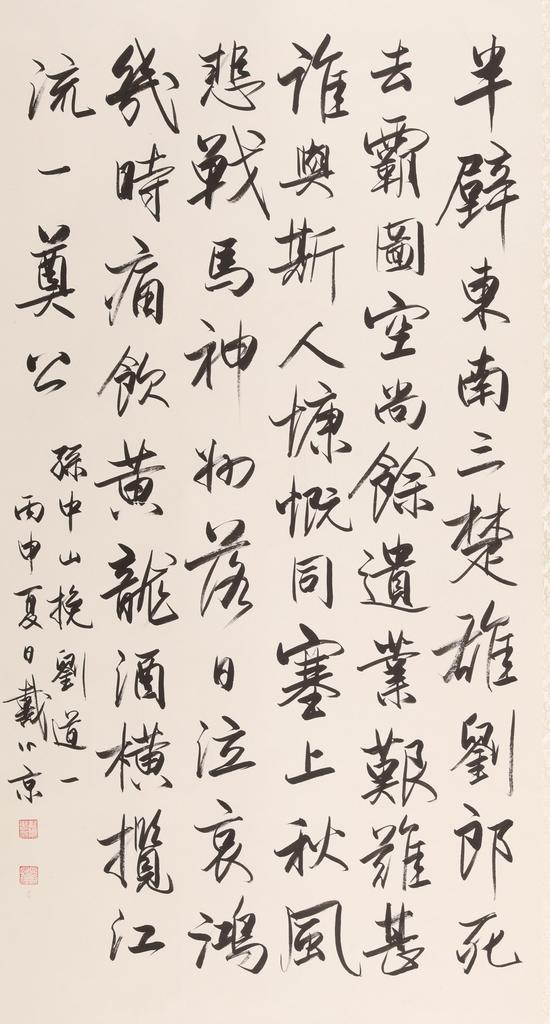 半壁東南三楚雄劉郎死
去霸圖空尚餘遺業艱難甚
誰與斯人慷慨同塞上秋風
悲戰馬神州落日泣哀鴻
幾時痛飲黃龍酒橫攬江
流一奠公
孫中山挽劉道一
丙申夏日戴小京